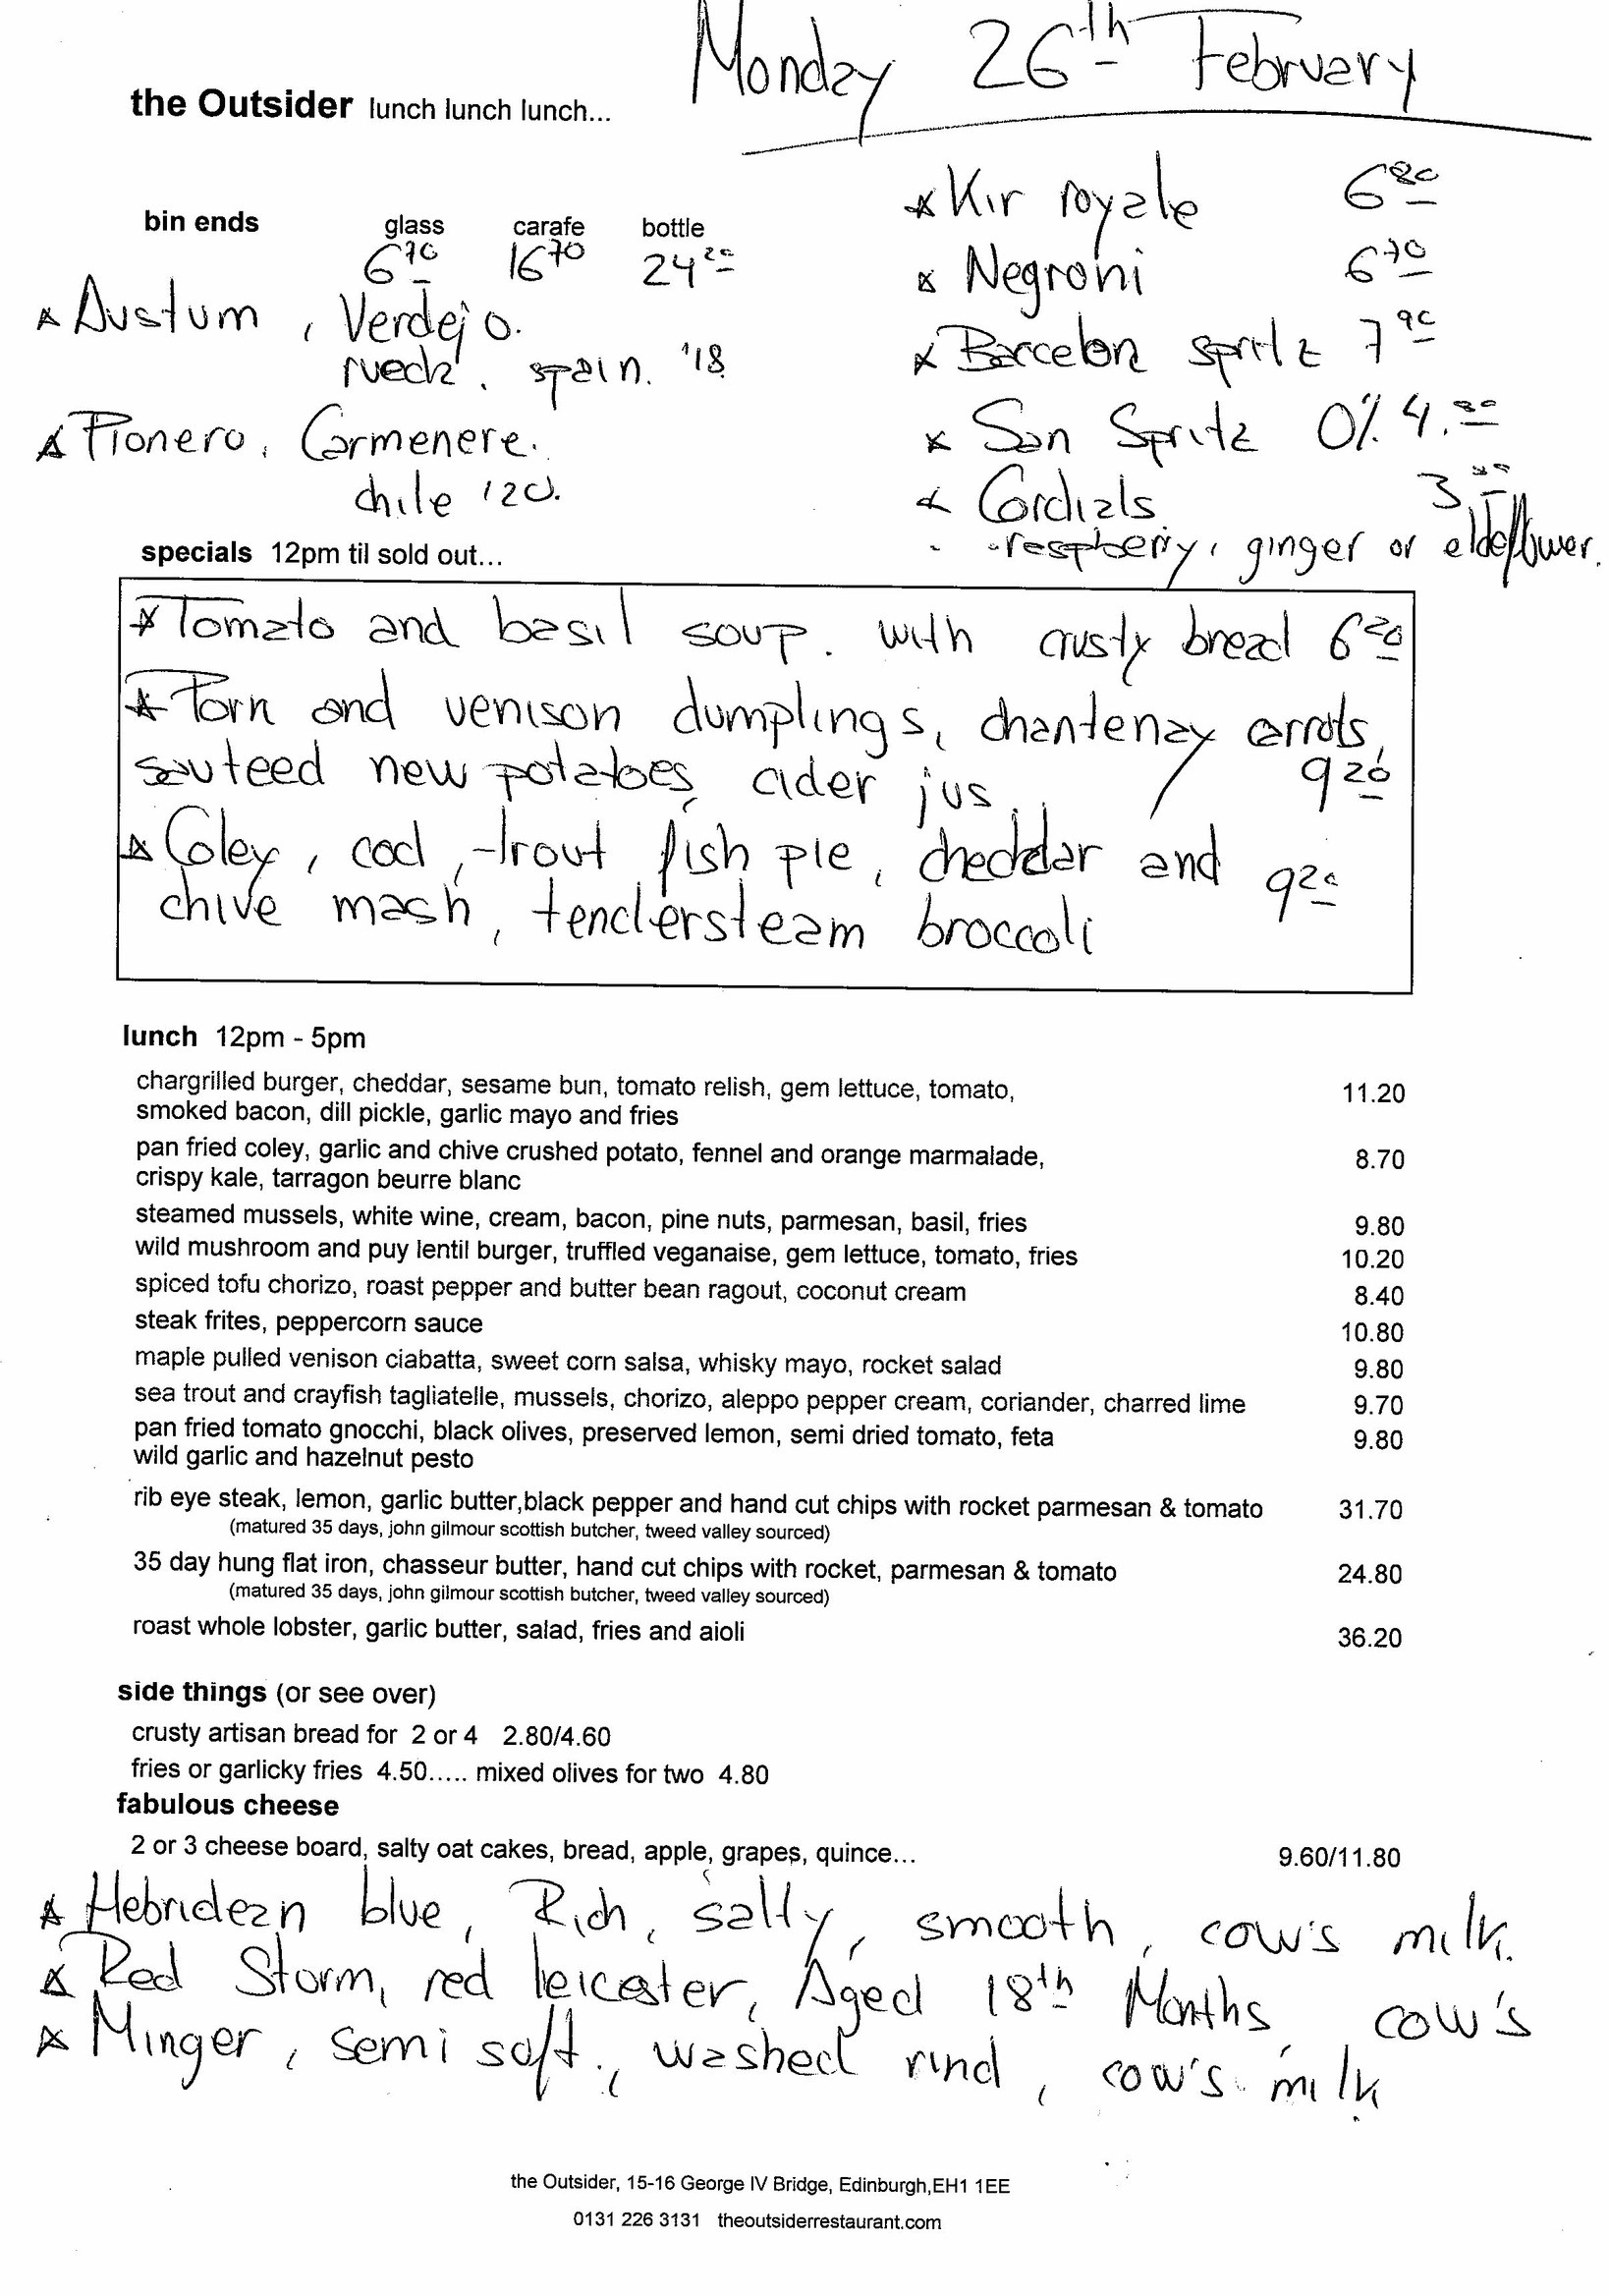 Monday 26th February
the Outsider lunch lunch lunch...
bin ends glass carafe bottle
6 70 16 70 24 20
Austum, Verdejo.
rueda. spain. '18
Pionero, Carmenere.
chile '20.
Kir royale 6 80
Negroni 6 70
Barcelon spritz 7 90
San Spritz 0% 4.80
Cordials 3
raspberry, ginger or eldeflower.
specials 12pm til sold out...
Tomato and basil soup. with crusty bread 6 20
Pork and venison dumplings, chantenay carrots,
sauteed new potatoes, cider jus. 9 20
Coley, cod, trout fish pie, cheddar and 9 20
chive mash, tendersteam broccoli
lunch 12pm - 5pm
chargrilled burger, cheddar, sesame bun, tomato relish, gem lettuce, tomato, 11.20
smoked bacon, dill pickle, garlic mayo and fries
pan fried coley, garlic and chive crushed potato, fennel and orange marmalade, 8.70
crispy kale, tarragon beurre blanc
steamed mussels, white wine, cream, bacon, pine nuts, parmesan, basil, fries 9.80
wild mushroom and puy lentil burger, truffled veganaise, gem lettuce, tomato, fries 10.20
spiced tofu chorizo, roast pepper and butter bean ragout, coconut cream 8.40
steak frites, peppercorn sauce 10.80
maple pulled venison ciabatta, sweet corn salsa, whisky mayo, rocket salad 9.80
sea trout and crayfish tagliatelle, mussels, chorizo, aleppo pepper cream, coriander, charred lime 9.70
pan fried tomato gnocchi, black olives, preserved lemon, semi dried tomato, feta 9.80
wild garlic and hazelnut pesto
rib eye steak, lemon, garlic butter,black pepper and hand cut chips with rocket parmesan & tomato 31.70
(matured 35 days, john gilmour scottish butcher, tweed valley sourced)
35 day hung flat iron, chasseur butter, hand cut chips with rocket, parmesan & tomato 24.80
(matured 35 days, john gilmour scottish butcher, tweed valley sourced)
roast whole lobster, garlic butter, salad, fries and aioli 36.20
side things (or see over)
crusty artisan bread for 2 or 4 2.80/4.60
fries or garlicky fries 4.50..... mixed olives for two 4.80
fabulous cheese
2 or 3 cheese board, salty oat cakes, bread, apple, grapes, quince... 9.60/11.80
Hebridean blue, Rich, salty, smooth, cow's milk.
Red Storm, red leicester, Aged 18th Months, cow's
Minger, semi soft., washed rind, cow's milk
the Outsider, 15-16 George IV Bridge, Edinburgh,EH1 1EE
0131 226 3131 theoutsiderrestaurant.com